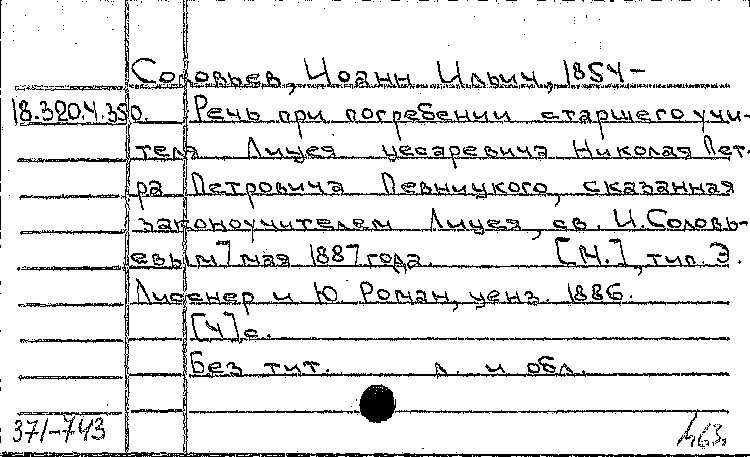 Соловьев, Иоанн Ильич, 1854-
18.320.4.350. Речь при погребении старшего учи-
теля Лицея цесаревича Николая Пет-
ра Петровича Певницкого, сказанная
законоучителем Лицея, св. И. Соловь-
евым 7 мая 1887 года. [М.], тип. Э.
Лисснер и Ю. Роман, ценз. 1886.
[4] с.
Без тит. л. и обл.
371-743